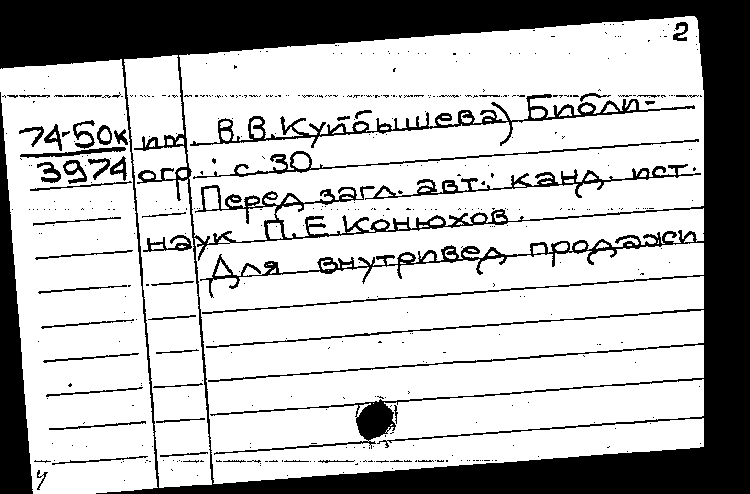 2
74-50к им. В.В.Куйбышева) Библи-
3974 огр.: с. 30.
Перед загл. авт.: канд. ист.
наук П.Е.Конюхов.
Для внутривед продажи